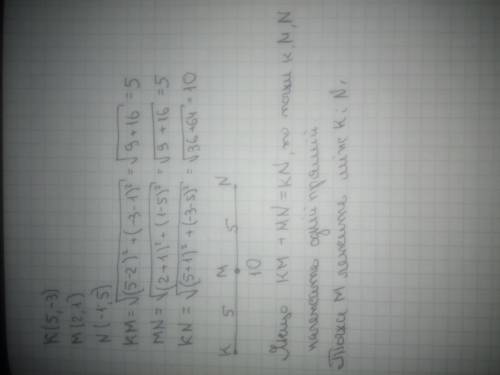 K(5,-3)
M(2,1)
N(-1,5)
KM=√(5-2)²+(-3-1)²=√9+16=5
MN=√(2+1)²+(1-5)²=√9+16=5
KN=√(5+1)²+(-3-5)²=√36+64=10
K 5 M 5 N
10
Якщо KM+MN=KN, то точки K, M, N
належать одній прямій
Точка M лежить між K і N.